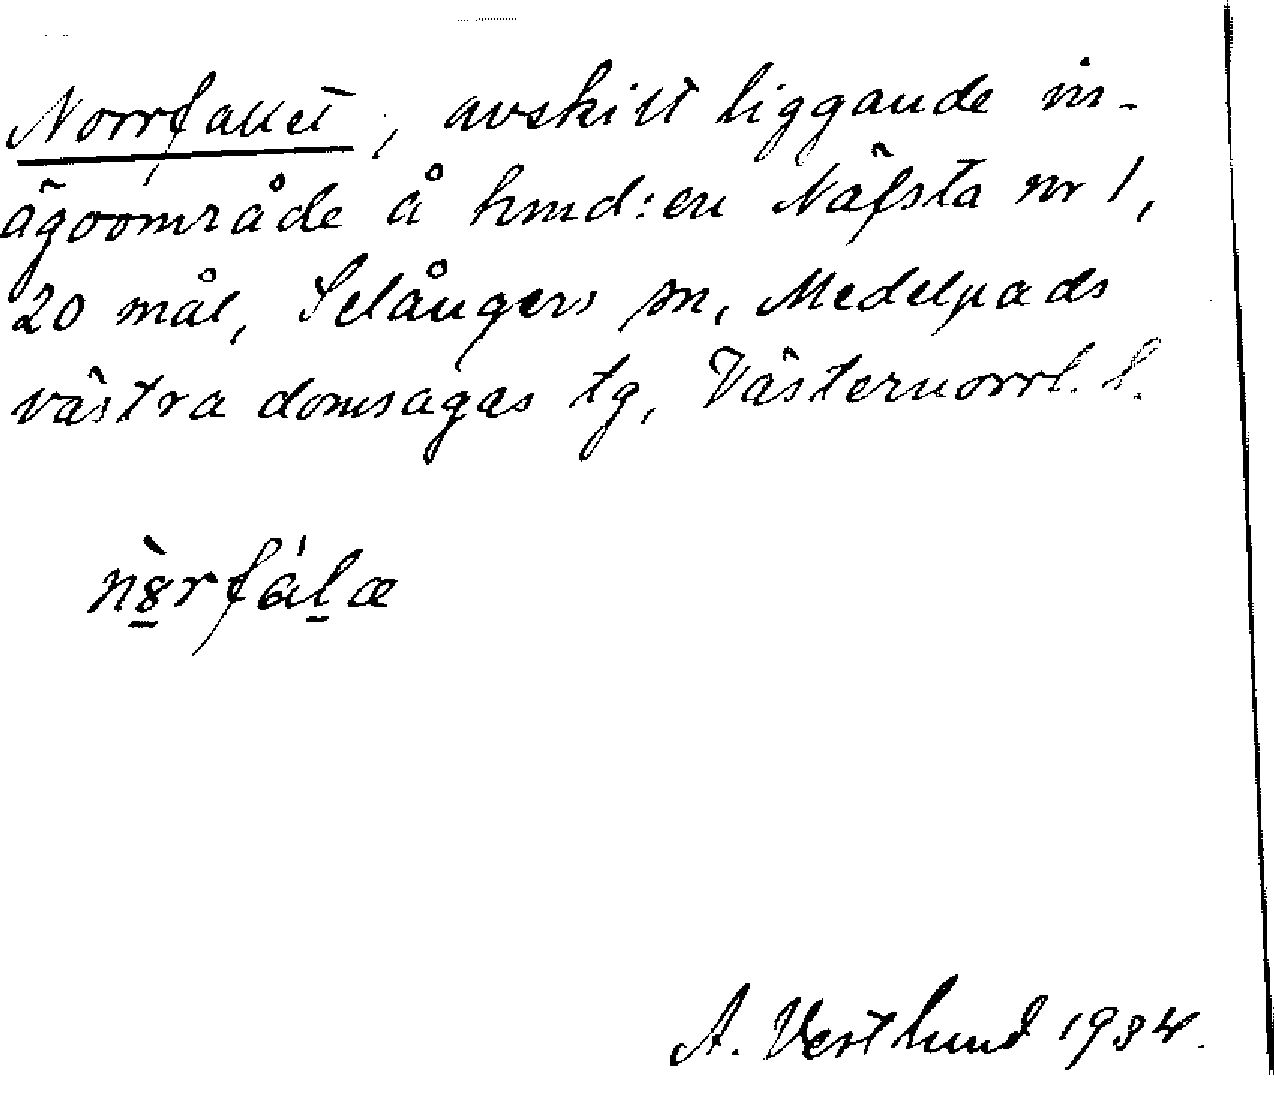 Norrfallet, avskilt liggande in-
ägoområde å hmd:en Näfsta nr 1,
20 mål, Selångers sn, Medelpads
västra domsagas tg, Västernorrl. l.
nȣ̀rfáḷæ
A. Vestlund 1934.